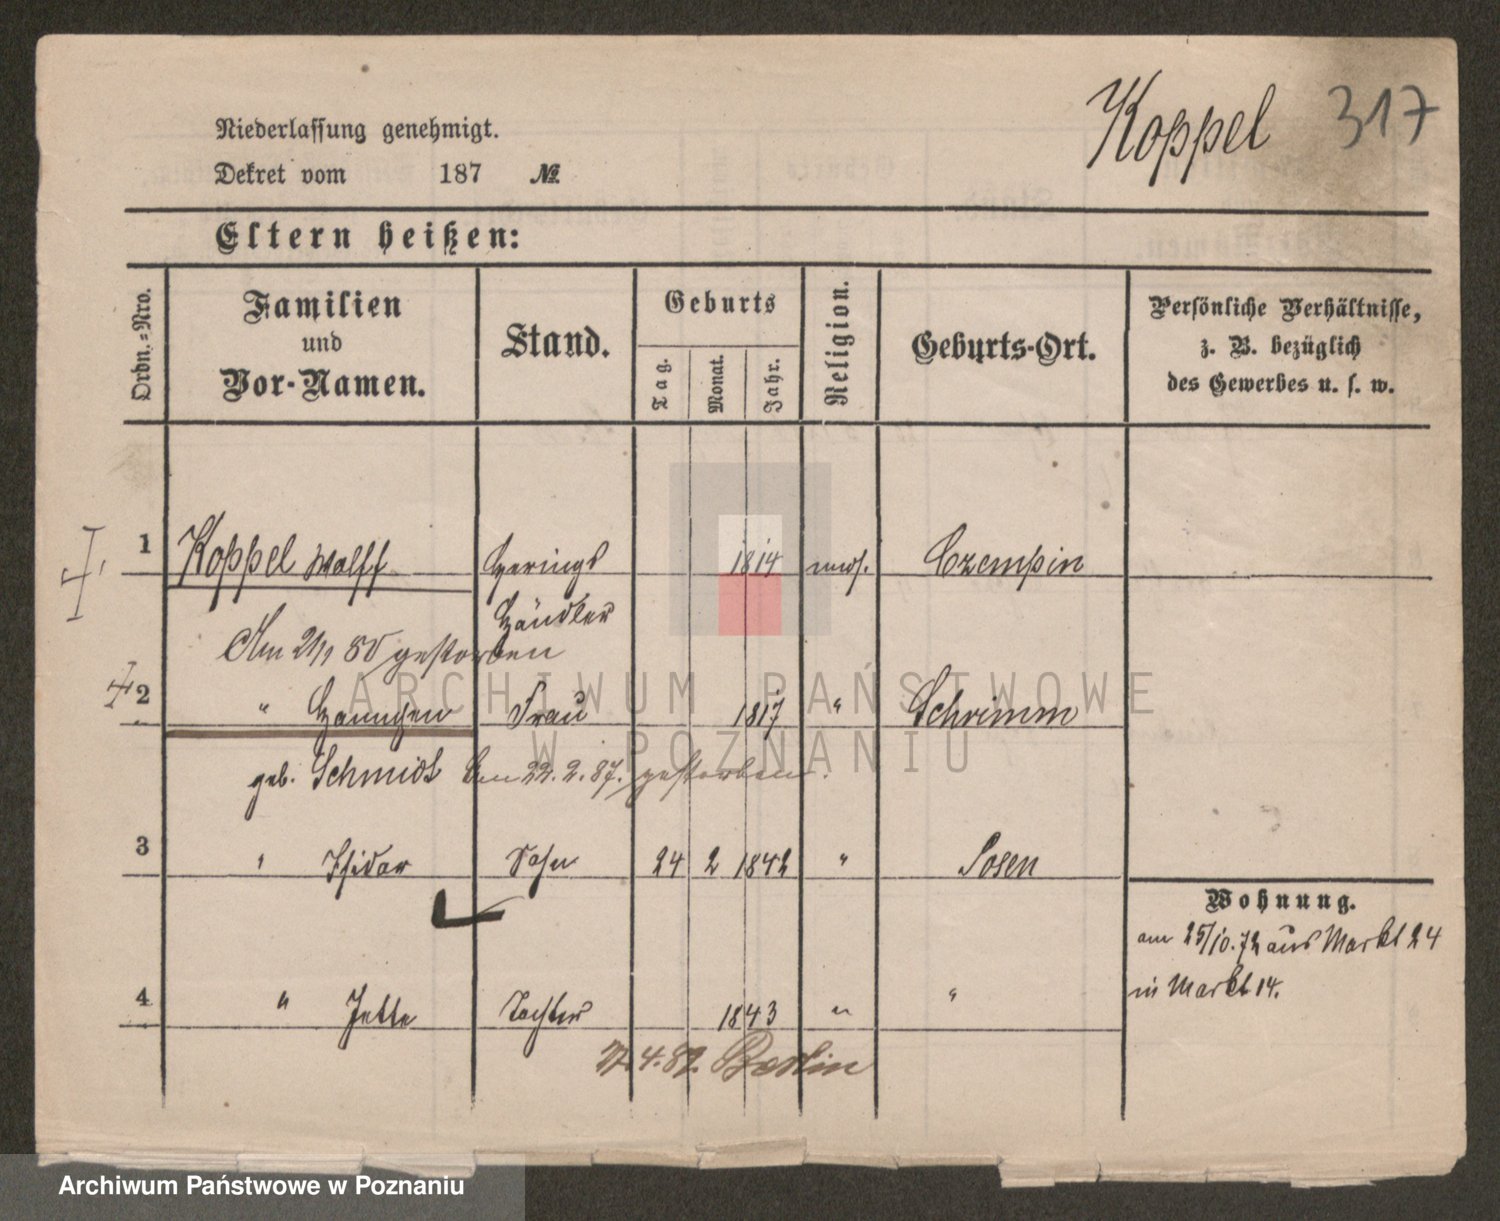 Koppel 317
Niederlassung genehmigt.
Dekret vom 187 №
Eltern heißen:
Ordn.-Nro.
Familien
und
Vor-Namen.
Stand.
Geburts
Tag.
Monat.
Jahr.
Religion.
Geburts-Ort.
Persönliche Verhältnisse,
z. B. bezüglich
des Gewerbes u. s. w.
1 Koppel Wolff Herings 1814 mos. Czempin
Händler
Am 21/1 80 gestorben
2 " Hannchen Frau 1817 " Schrimm
geb. Schmidt Am 22. 2. 87. gestorben.
3 " Isidor Sohn 24 2 1842 " Posen
Wohnung.
am 25/10.72 aus Markt 24
in Markt 14.
4 " Jette Tochter 1843 " "
4. 82. Berlin
ARCHIWUM PAŃSTWOWE
W POZNANIU
Archiwum Państwowe w Poznaniu